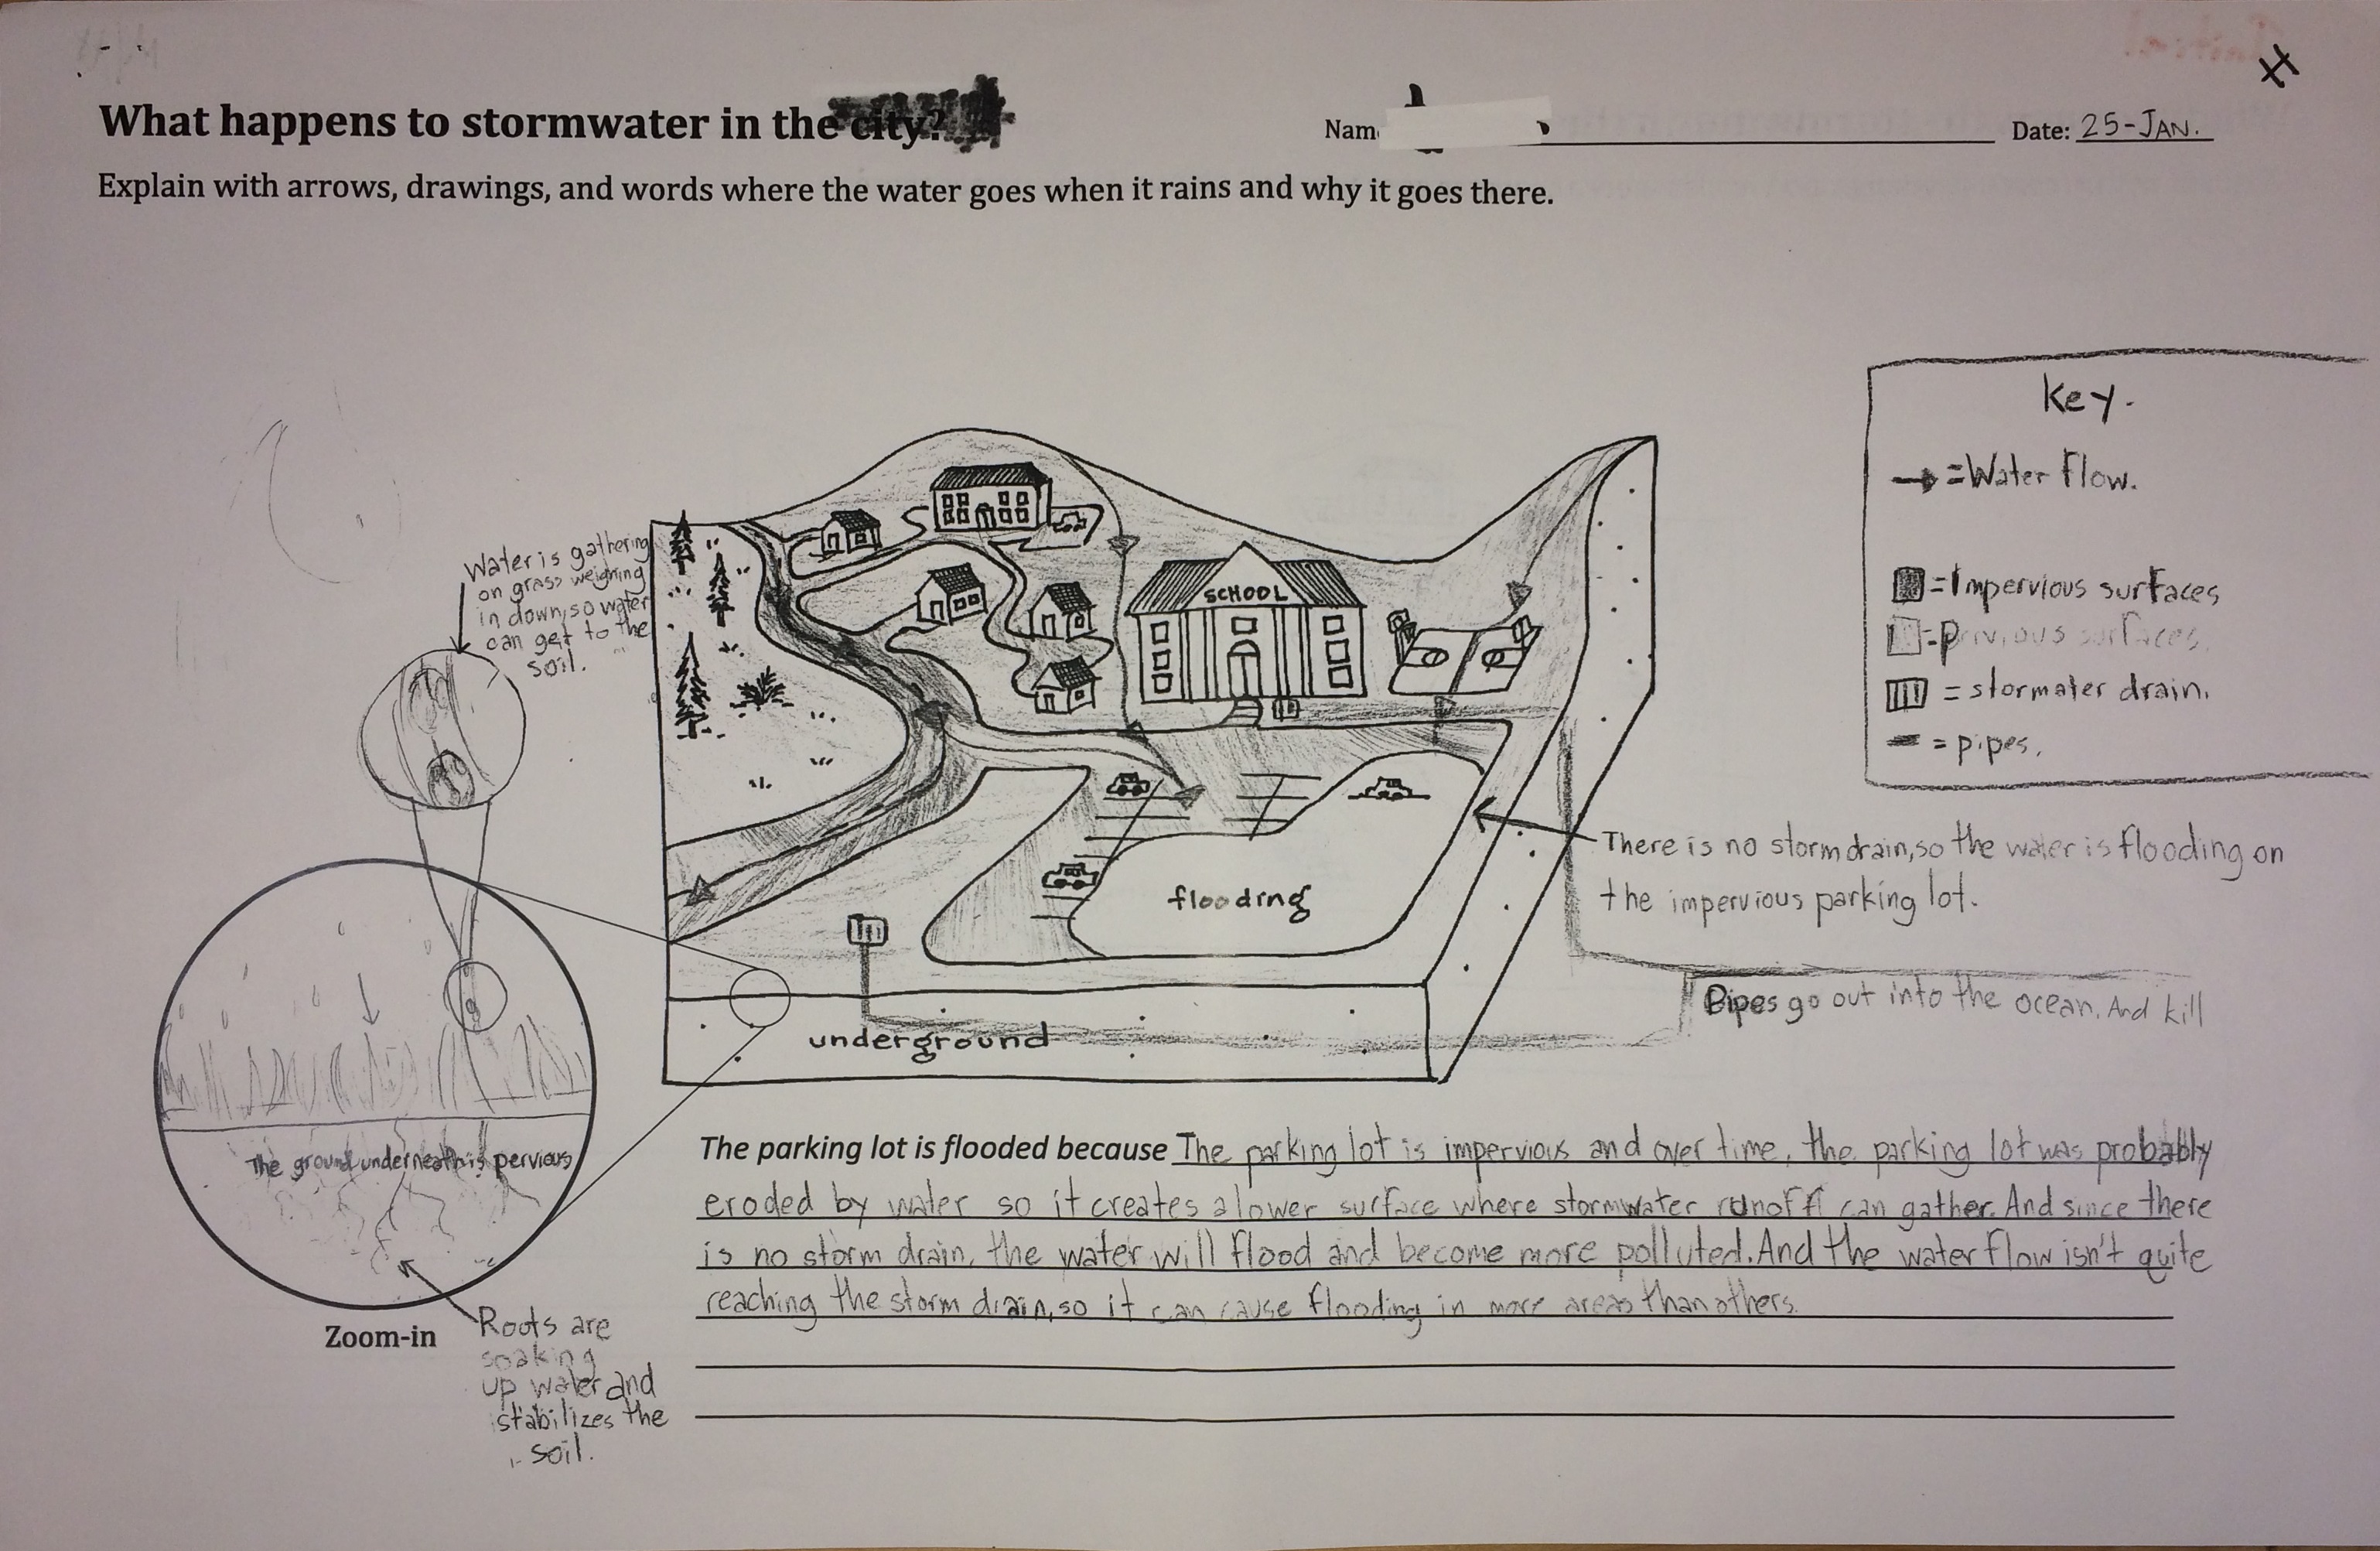 What happens to stormwater in the city?
Name
Date: 25-JAN.
H
Explain with arrows, drawings, and words where the water goes when it rains and why it goes there.
Key.
=Water flow.
=Impervious surfaces
=privious surfaces.
=stormater drain.
=pipes.
Water is gathering
on grass weighing
in down, so water
can get to the
soil.
SCHOOL
flooding
There is no storm drain, so the water is flooding on
the impervious parking lot.
Pipes go out into the ocean. And kill
underground
The ground underneath is pervious
Zoom-in
Roots are
soaking
up water and
stabilizes the
soil.
The parking lot is flooded because The parking lot is impervious and over time, the parking lot was probably
eroded by water so it creates a lower surface where stormwater runoff can gather. And since there
is no storm drain, the water will flood and become more polluted. And the water flow isn't quite
reaching the storm drain, so it can cause flooding in more areas than others.